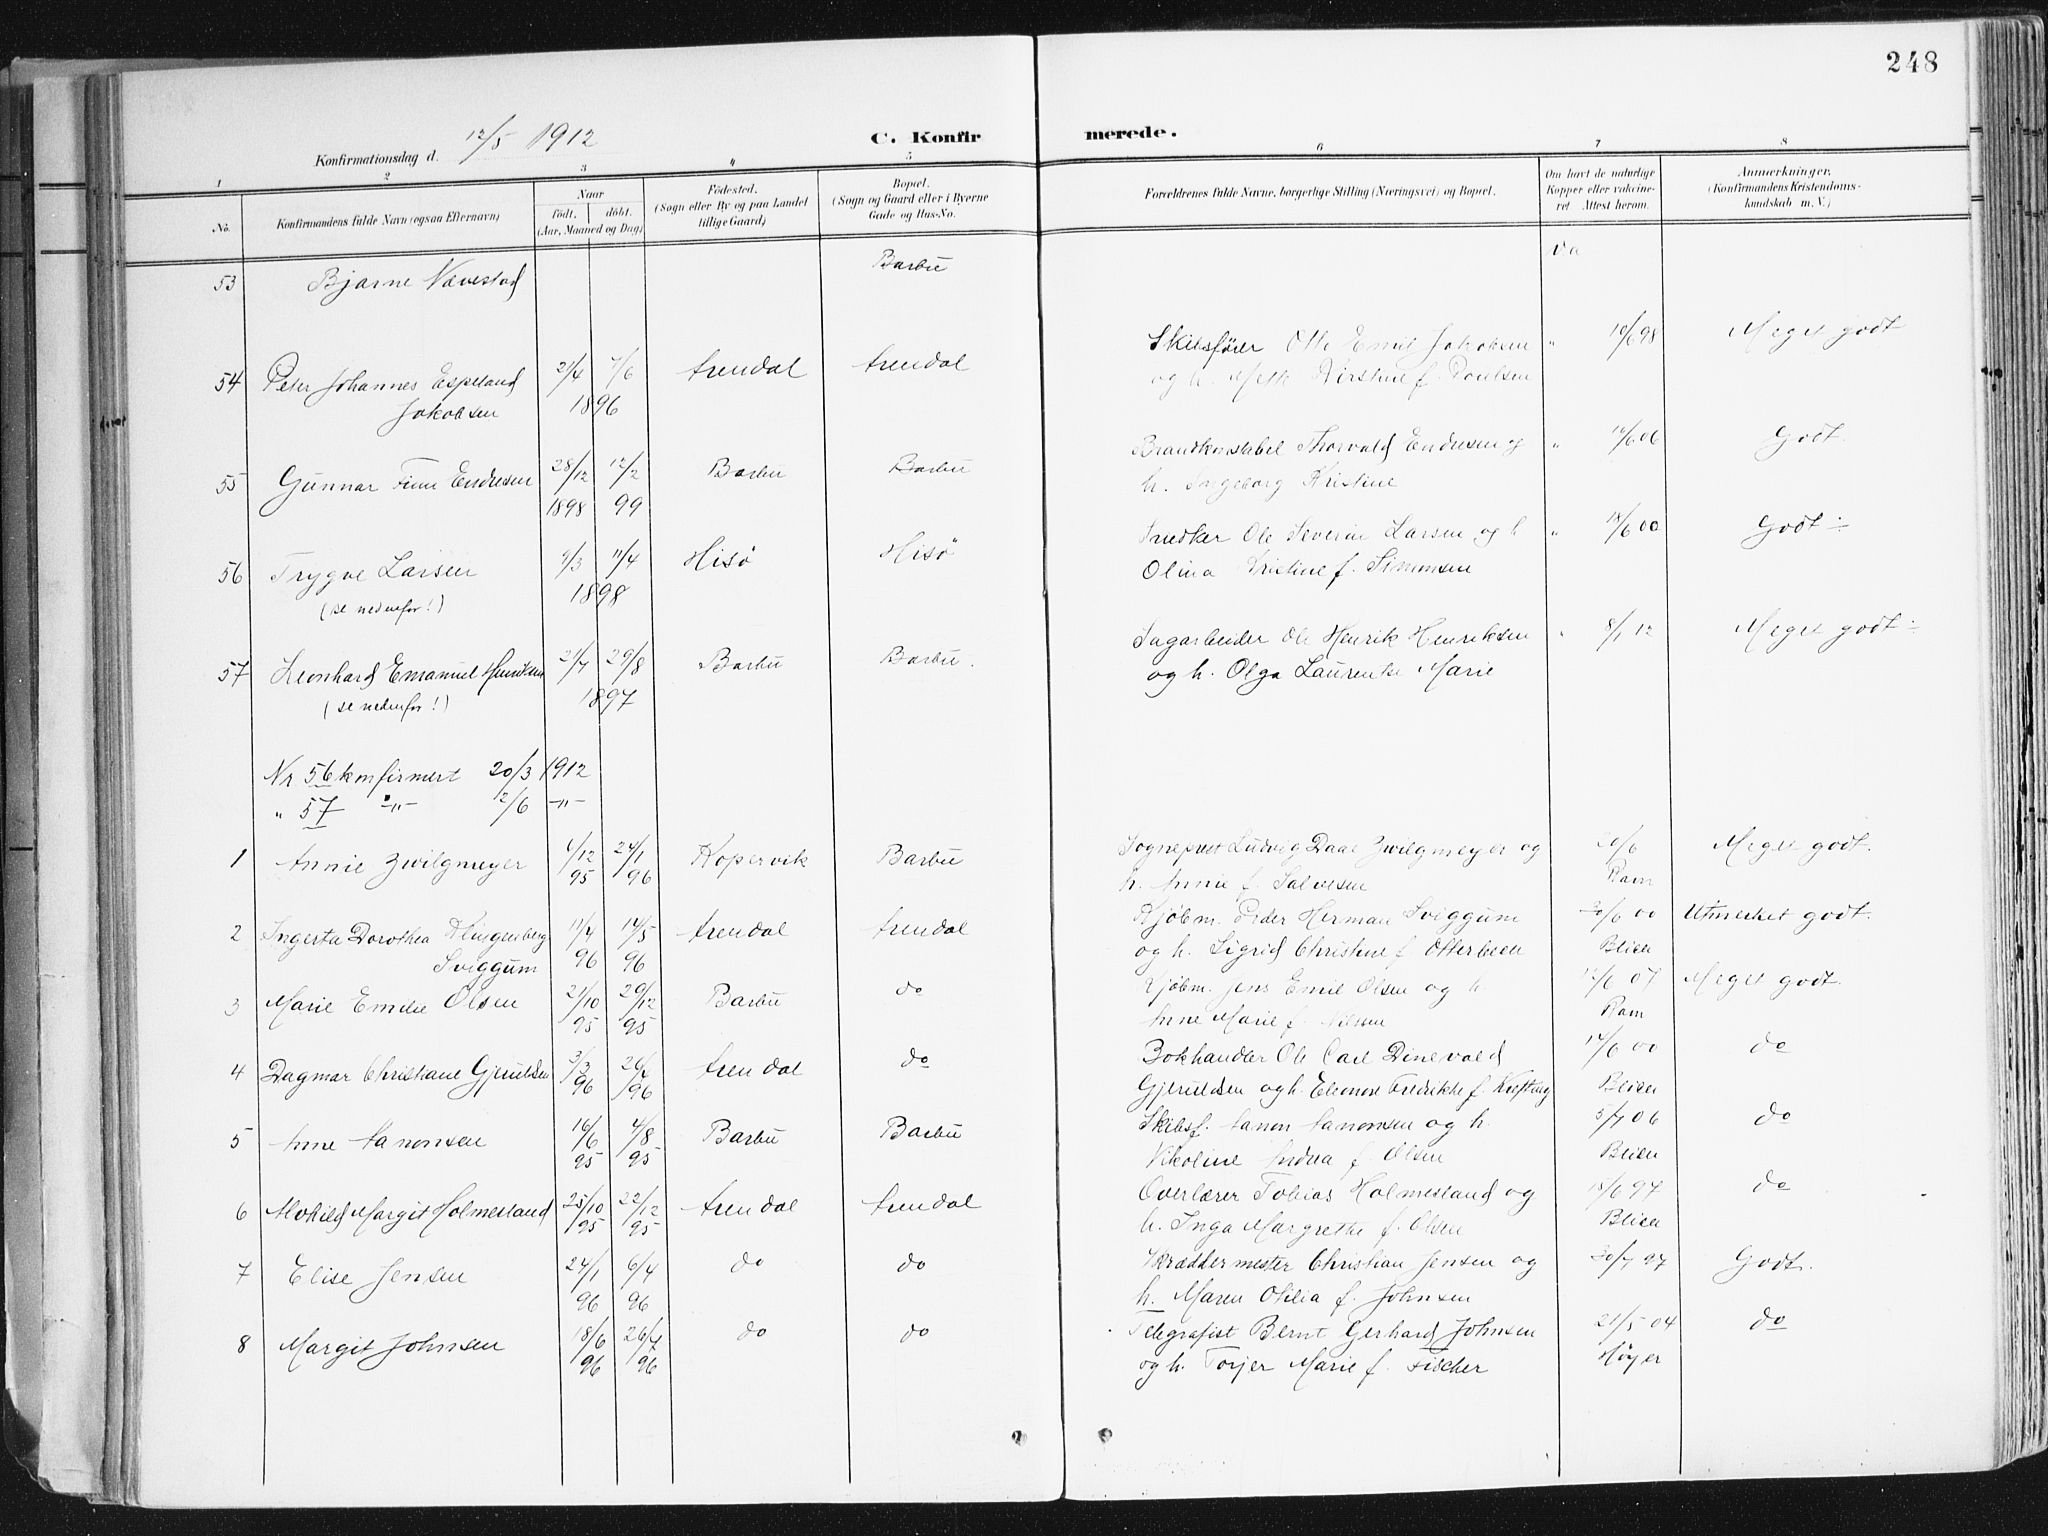 248
Konfirmationsdag d. 12/5 1912
C. Konfirmerede.
1 2 3 4 5 6 7 8
No. Konfirmandens fulde Navn (ogsaa Efternavn) Naar födt. döbt. (Aar, Maaned og Dag) Födested. (Sogn eller By og paa Landet tillige Gaard) Bopæl. (Sogn og Gaard eller i Byerne Gade og Hus-No. Forældrenes fulde Navne, borgerlige Stilling (Næringsvei) og Bopæl. Om havt de naturlige Kopper eller vakcineret Attest herom. Anmærkninger, (Konfirmandens Kristendomskundskab m. V.)
53 Bjarne Nævestad Barbu Va
54 Peter Johannes Espeland 21/4 7/6 Arendal Arendal Skibsfører Otto Emil Jakobsen " 10/6 98 Meget godt
Jakobsen 1896 og h. Kirstine f. Poulsen
55 Gunnar Finn Endresen 28/12 12/2 Barbu Barbu Brandkonstabel Thorvald Endresen og " 06 Godt.
1898 99 h. Ingeborg Kristine
56 Trygve Larsen 11/4 Hisø Hisø Snedker Ole Severin Larsen og h " 18/6 00 Godt
(se nedenfor!) 1898 Olina Kristine f. Simonsen
57 Leonhard Emanuel Henriksen 21/7 29/8 Barbu Barbu. Sagarbeider Ole Henrik Henriksen " 8/1 12 Meget godt
(se nedenfor!) 1897 og h. Olga Laurentse Marie
Nr 56 konfirmert 20/3 1912
" 57 -"- 2/6 -"-
1 Annie Zwilgmeyer 24/1 Kopervik Barbu Sogneprest Ludvig Daae Zwilgmeyer og 20/6 Meget godt.
95 96 h. Annie f. Salvesen Ram
2 Ingerta Dorothea Klingenberg 11/4 14/5 Arendal Arendal Kjøbm. Peder Herman Sviggum 30/6 00 Utmerket godt.
Sviggum 96 96 og h. Sigrid Christine f. Otterbeen
3 Marie Emilie Olsen 21/10 29/12 Barbu do Kjøbm. Jens Emil Olsen og h. 12/6 07 Meget godt.
95 95 Anne Marie f. Nilssen Ram
4 Dagmar Christiane Gjeruldsen 3/3 Arendal do Bokhandler Ole Carl Dinevald 14/6 00 do
96 96 Gjeruldsen og h. Eleonore Fredrikke f. Kiefting
5 Anne Aanonsen 16/6 4/8 Barbu Barbu Skibsf. Aanon Aanonsen og h. 5/7 06 do
95 95 Nikoline Andrea f. Olsen
6 Alvhild Margit Holmesland 25/10 22/12 Arendal Arendal Overlærer Tobias Holmesland og 18/6 97 do
95 95 h. Inga Margrethe f. Olsen
7 Elise Jensen 24/1 6/4 do do Skræddermester Christian Jensen og 30/7 97 Godt.
96 96 h. Maren Otilia f. Johnsen
8 Margit Johnsen 18/6 26/7 do do Telegrafist Bernt Gerhard Johnsen 21/5 04 do
96 96 og h. Torjer Marie f. Fischer Høyer